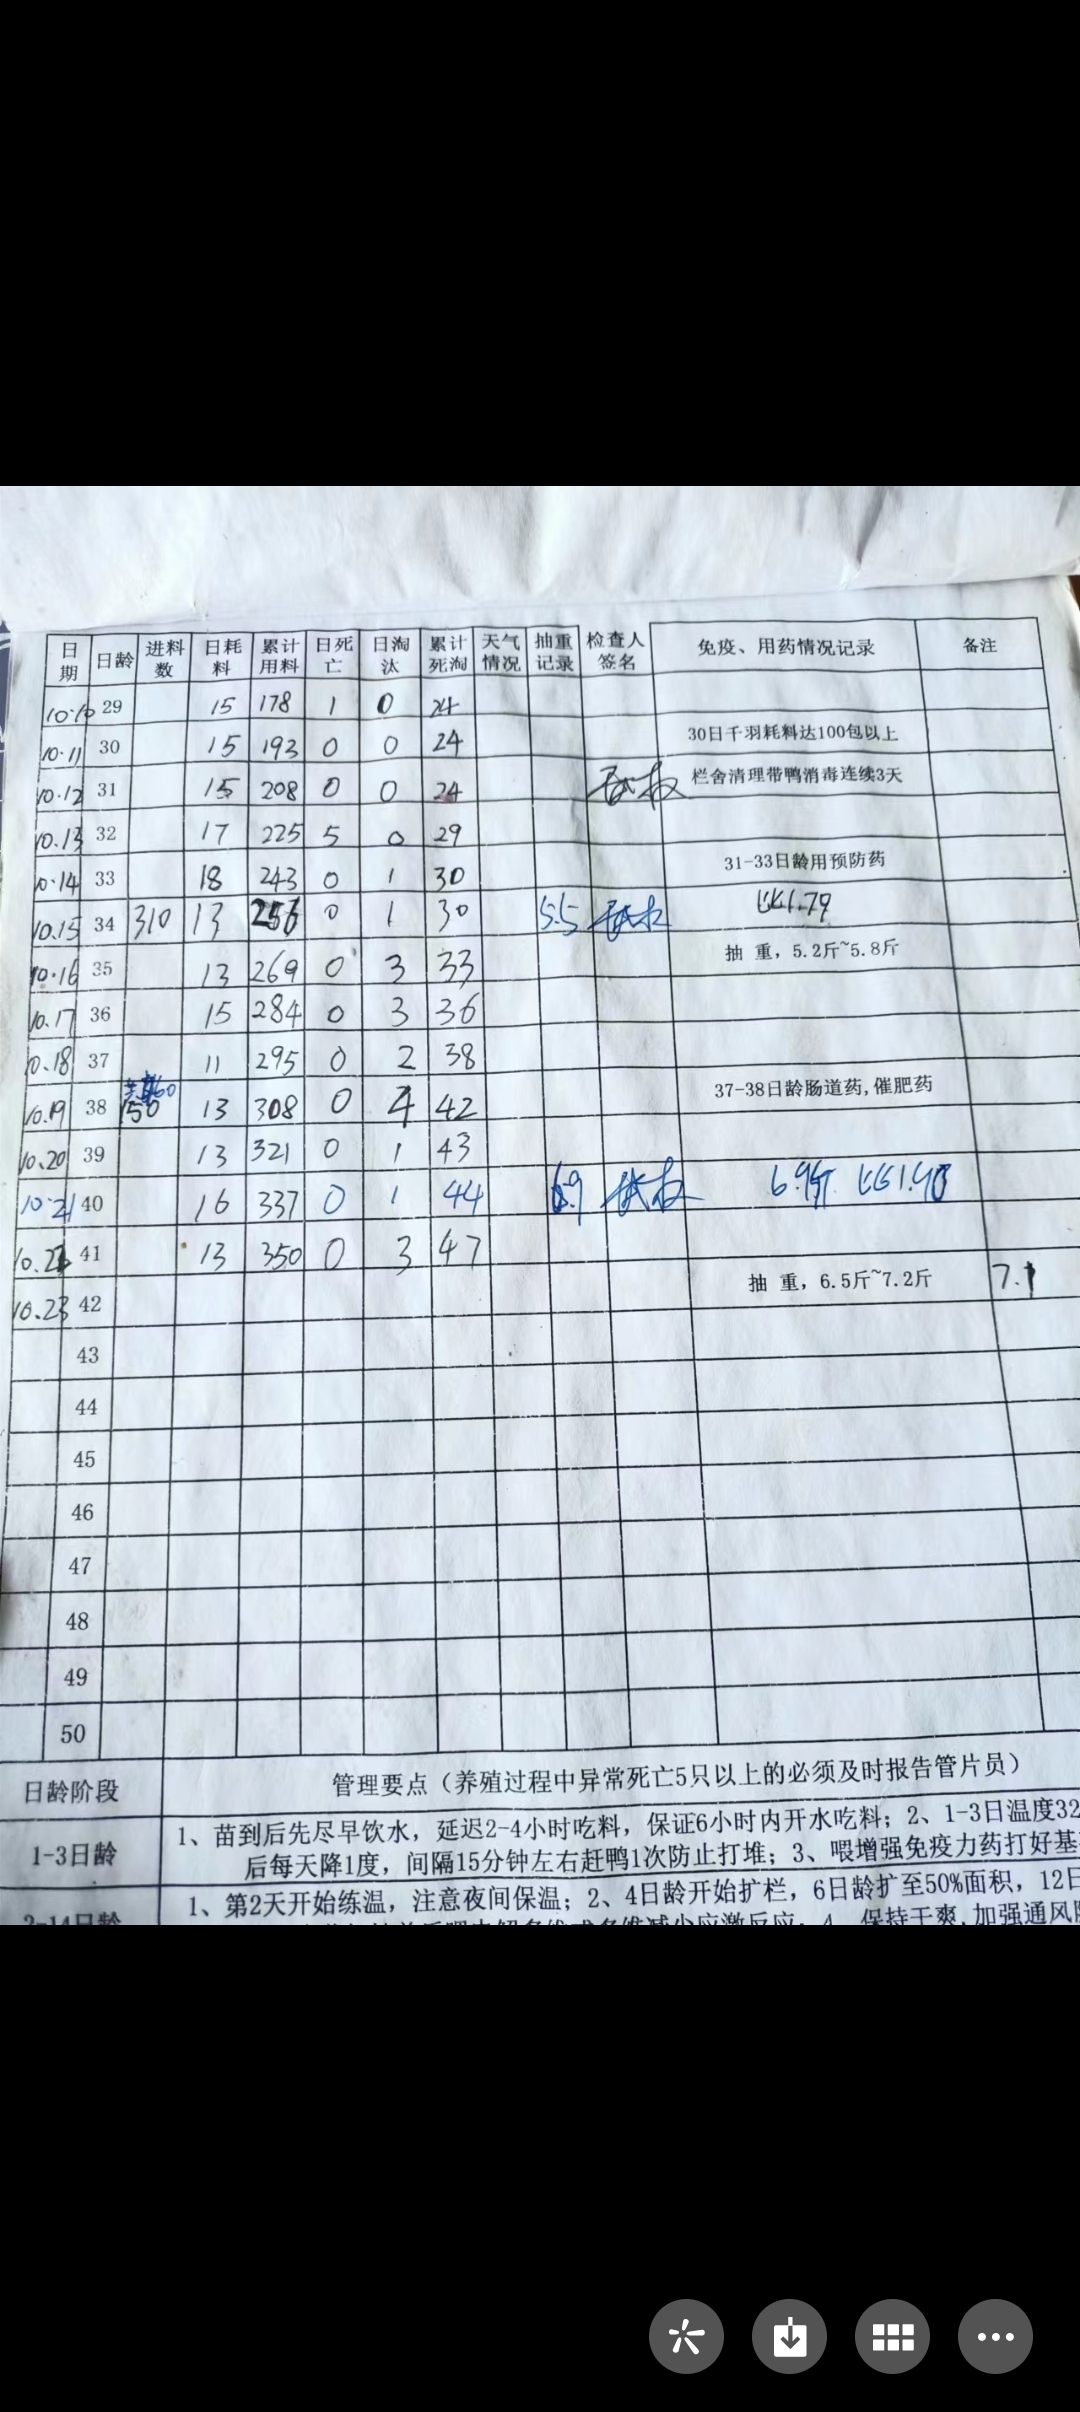 日期 日龄 进料数 日耗料 累计用料 日死亡 日淘汰 累计死淘 天气情况 抽重记录 检查人签名 免疫、用药情况记录 备注
10.10 29 15 178 1 0 24
10.11 30 15 193 0 0 24 30日千羽耗料达100包以上
10.12 31 15 208 0 0 24 栏舍清理带鸭消毒连续3天
10.13 32 17 225 5 0 29
10.14 33 18 243 0 1 30 31-33日龄用预防药
10.15 34 310 13 256 0 1 30 5.5 1.79
10.16 35 13 269 0 3 33 抽 重，5.2斤~5.8斤
10.17 36 15 284 0 3 36
10.18 37 11 295 0 2 38
10.19 38 150 13 308 0 4 42 37-38日龄肠道药,催肥药
10.20 39 13 321 0 1 43
10.21 40 16 337 0 1 44 6.9 6.9斤
10.22 41 13 350 0 3 47
10.23 42 抽 重，6.5斤~7.2斤 7.1
43
44
45
46
47
48
49
50
日龄阶段 管理要点（养殖过程中异常死亡5只以上的必须及时报告管片员）
1-3日龄 1、苗到后先尽早饮水，延迟2-4小时吃料，保证6小时内开水吃料；2、1-3日温度32
后每天降1度，间隔15分钟左右赶鸭1次防止打堆；3、喂增强免疫力药打好基
1、第2天开始练温，注意夜间保温；2、4日龄开始扩栏，6日龄扩至50%面积，12日
保持干爽,加强通风